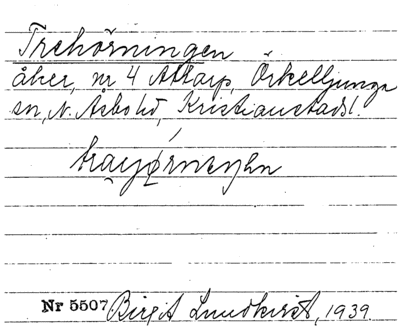 Trehörningen
åker, nr 4 Attarp, Örkelljunga
sn, N. Åsbo hd, Kristianstads l.
Nr 5507 Birgit Lundkvist, 1939.